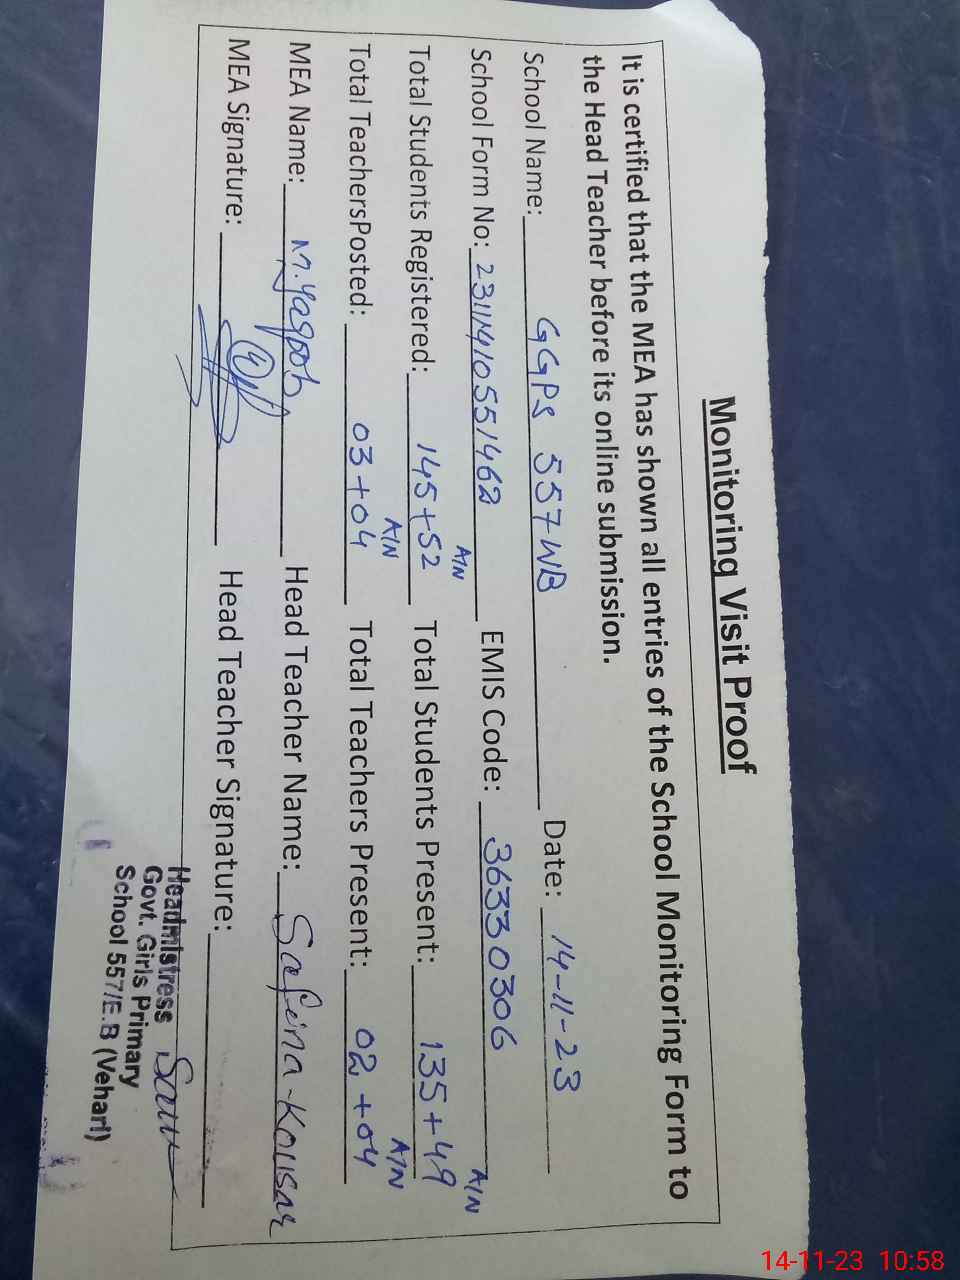 Monitoring Visit Proof
It is certified that the MEA has shown all entries of the School Monitoring Form to
the Head Teacher before its online submission.
School Name: GGPS 557WB Date: 14-11-23
School Form No: EMIS Code: 36330306
A/N A/N
Total Students Registered: 145+52 Total Students Present: 135+49
A/N A/N
Total TeachersPosted: 03+04 Total Teachers Present: 02+04
MEA Name: M.Yaqoob Head Teacher Name: Safina-Kousar
MEA Signature: Head Teacher Signature:
Headmistress
Govt. Girls Primary
School 557/E.B (Vehari)
14-11-23 10:58